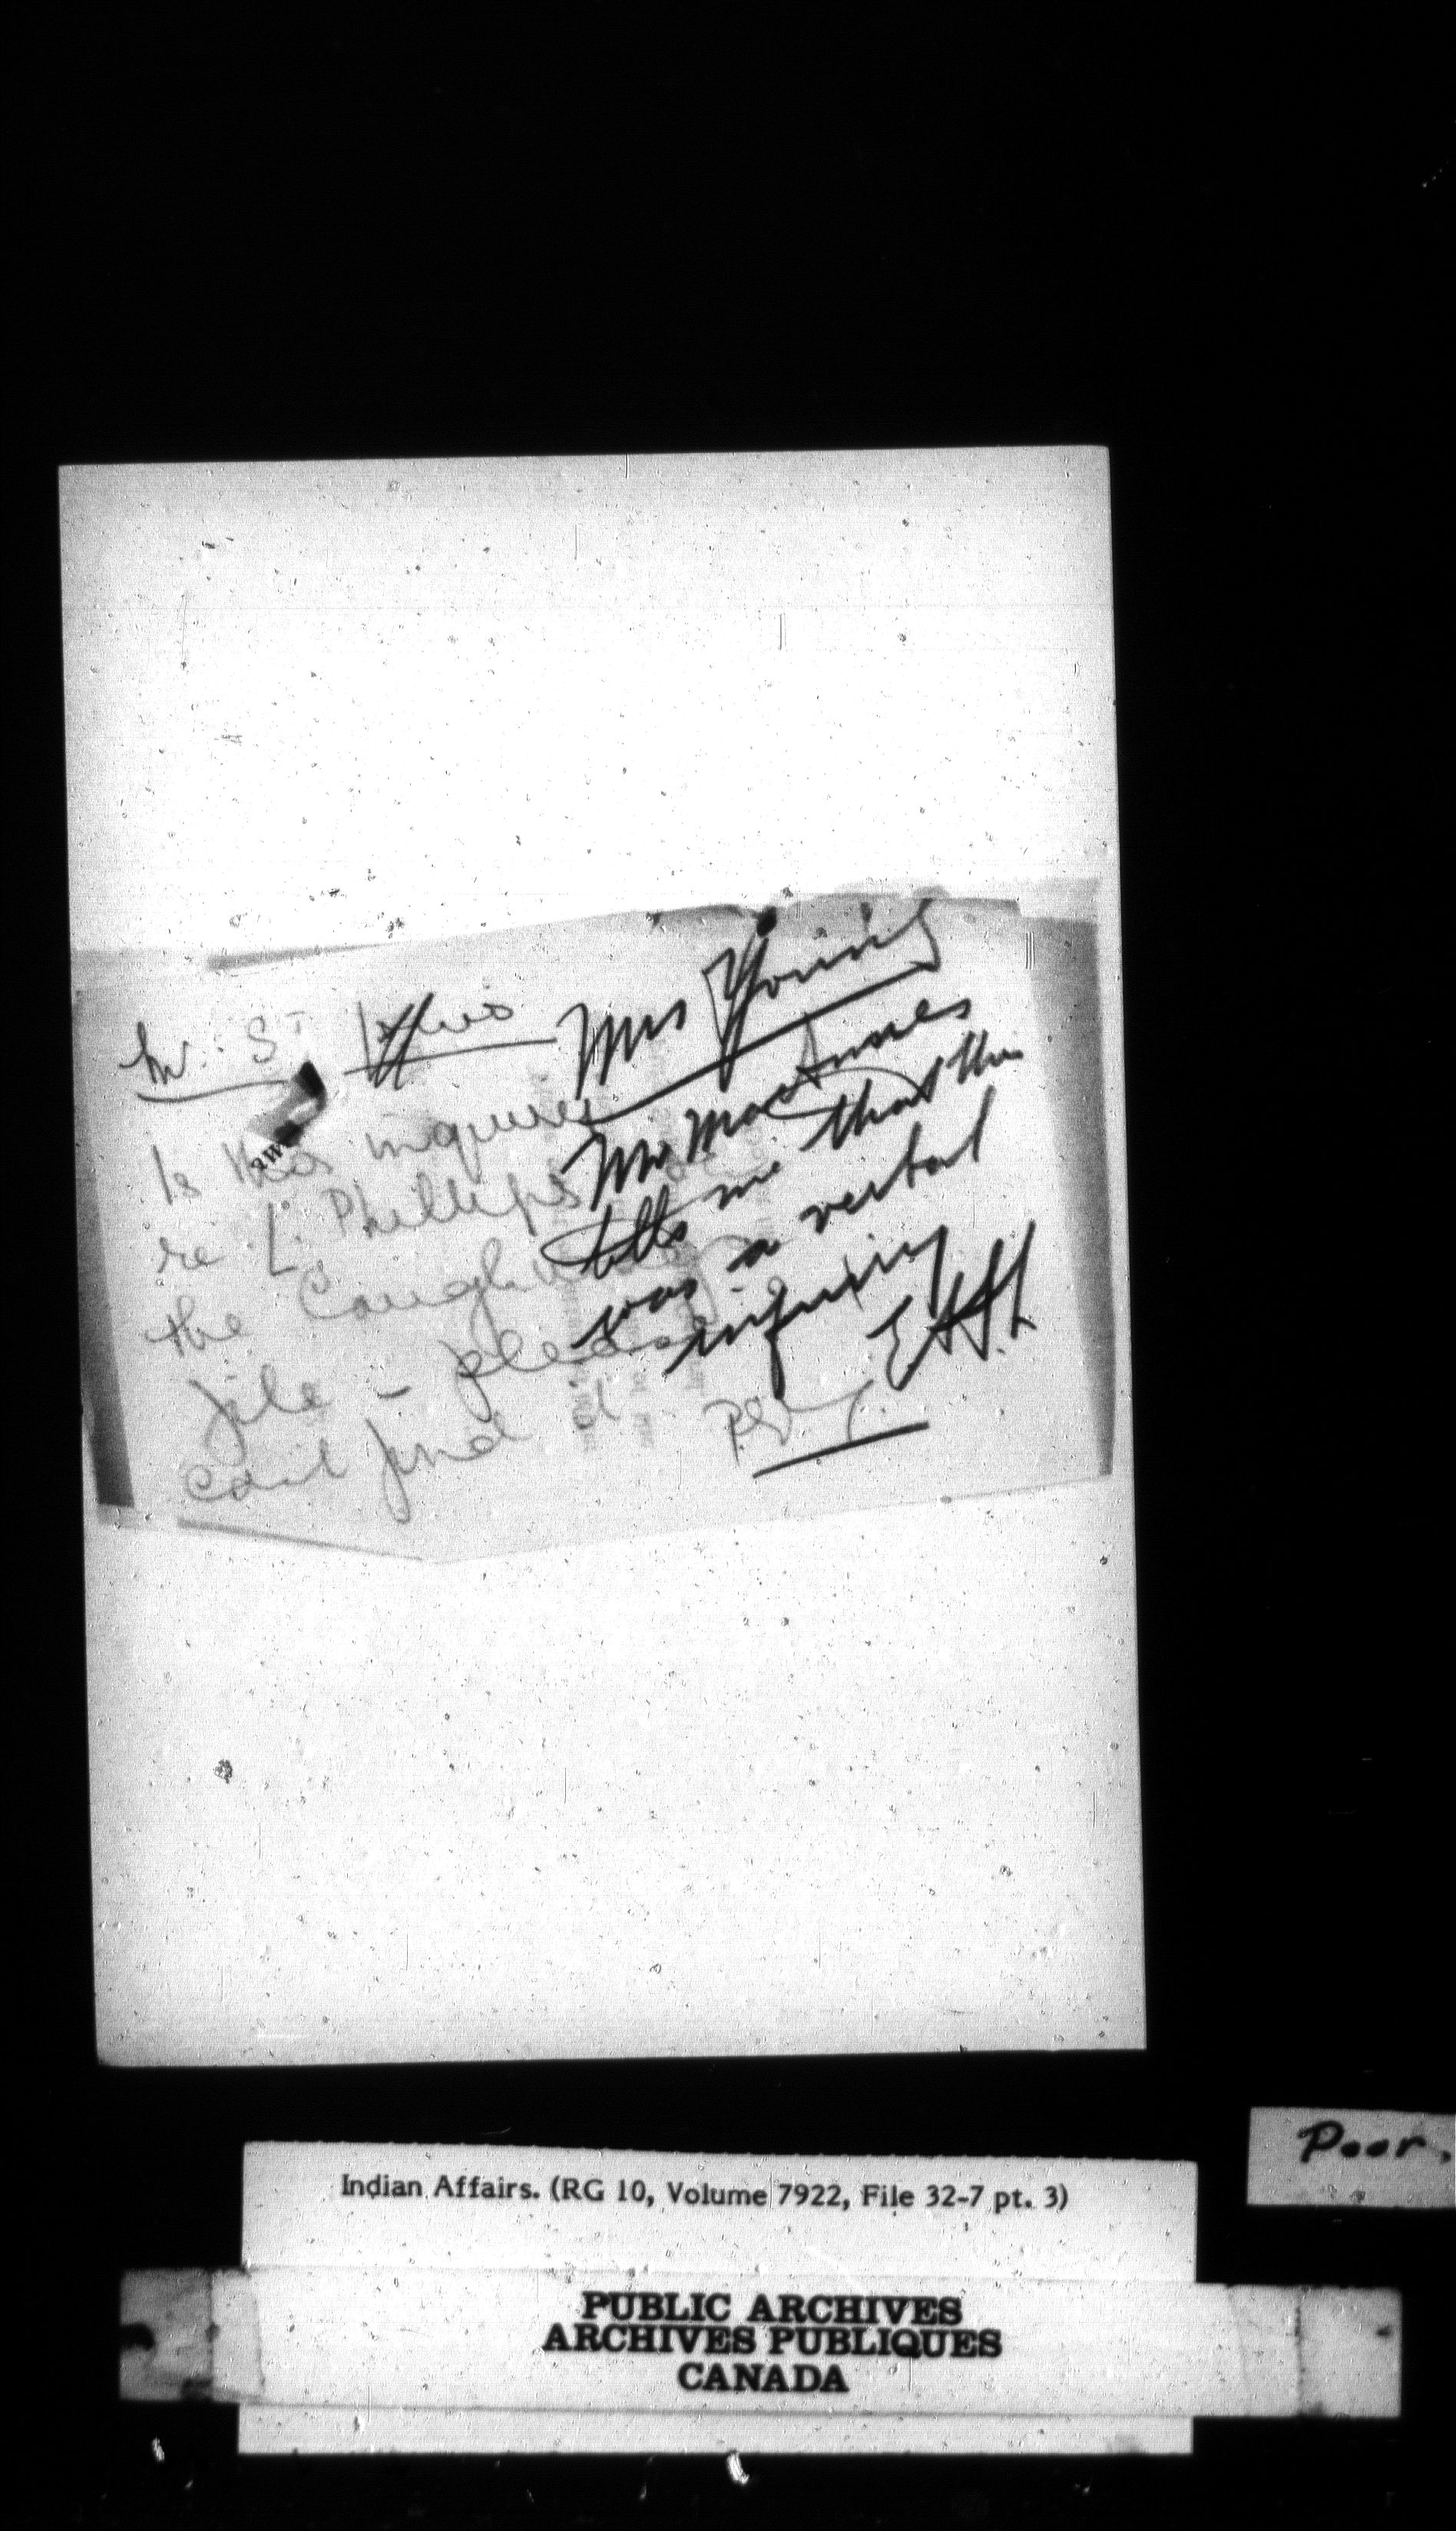 Mr. St Louis
Is this inquiry
re L. Phillips
the Caughnawaga
file – please
can't find it
P.S.Y.
Mrs Young
Mr MacInnes
tells me that this
was a verbal
inquiry
Poor.
Indian Affairs. (RG 10, Volume 7922, File 32-7 pt. 3)
PUBLIC ARCHIVES
ARCHIVES PUBLIQUES
CANADA